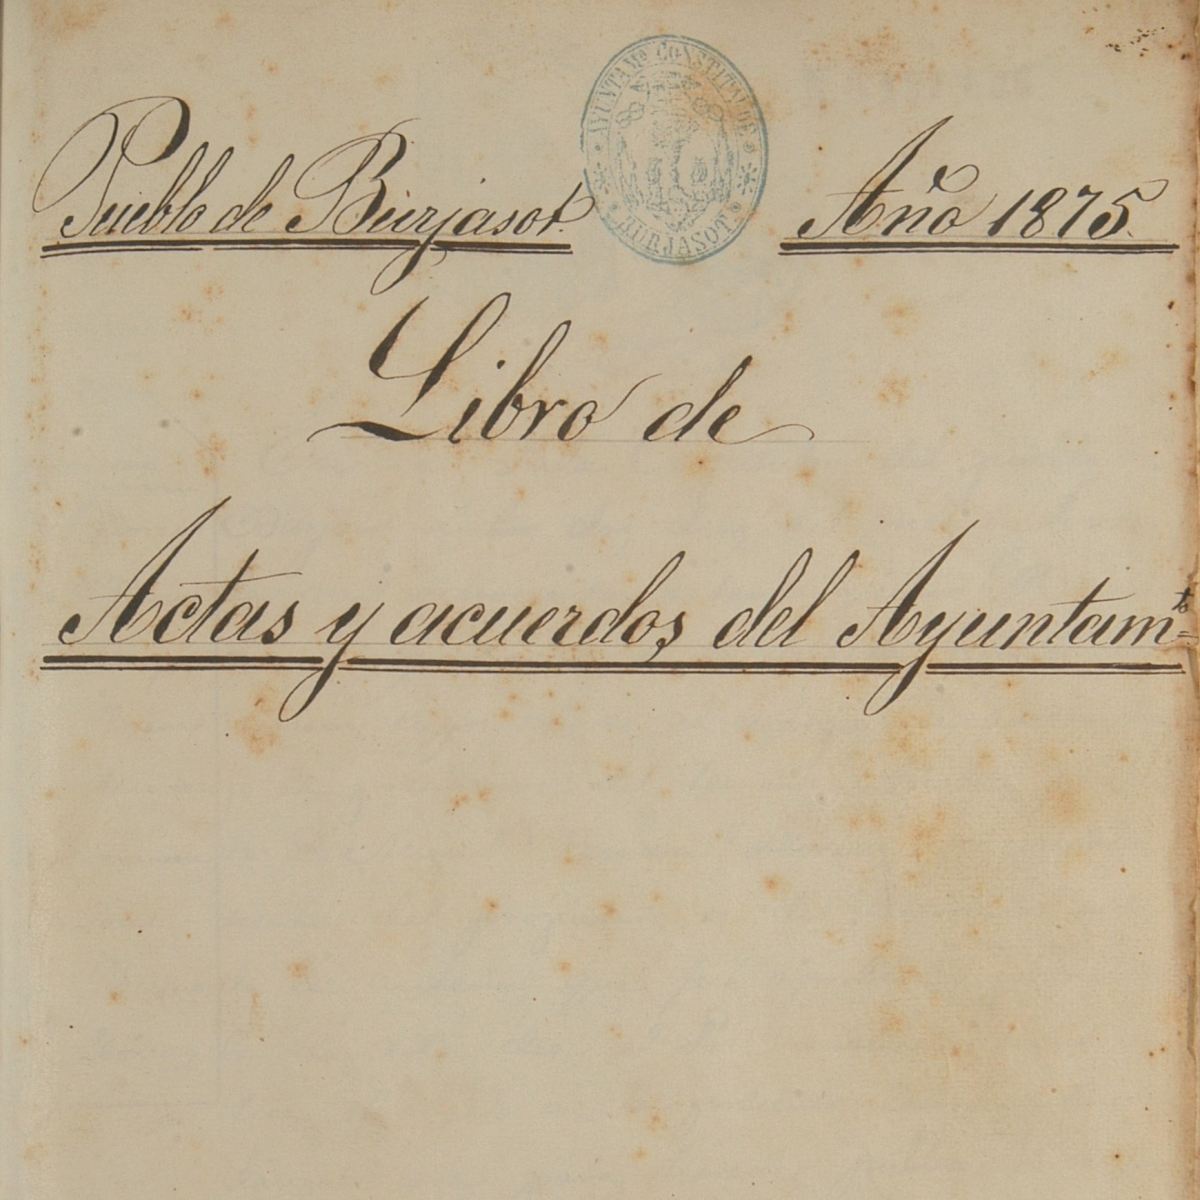 AYUNTAMº CONSTITUL. DE
BURJASOT
Pueblo de Burjasot. Año 1875.
Libro de
Actas y acuerdos del Ayuntamto